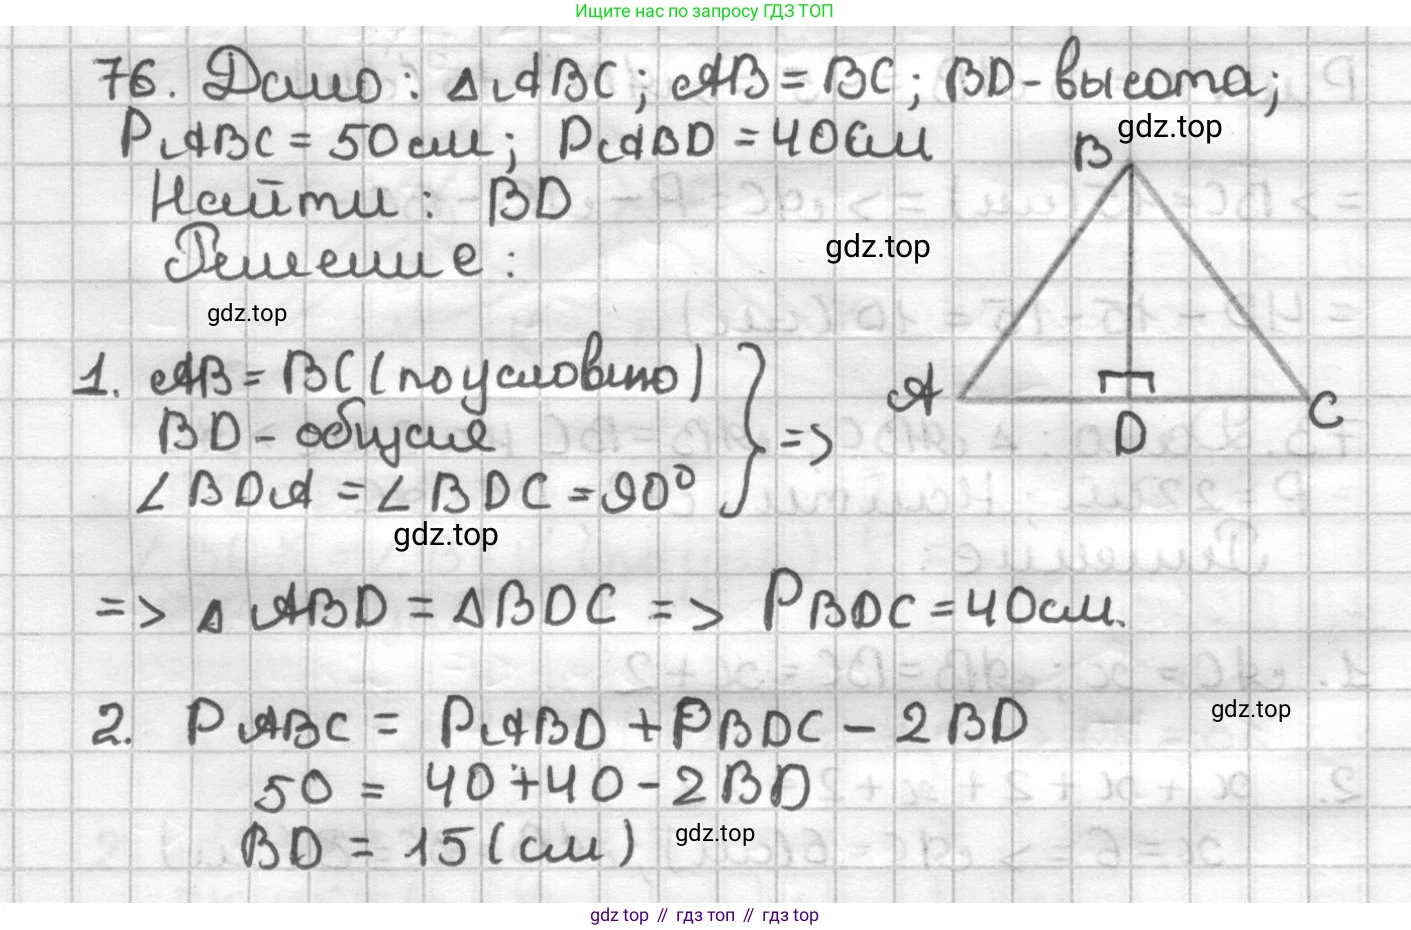 Ищите нас по запросу ГДЗ ТОП
76. Дано: △ABC; AB = BC; BD - высота;
gdz.top
P ABC = 50 см; P ABD = 40 см
B
Найти: BD
gdz.top
Решение:
gdz.top
1. AB = BC (по условию)
A
C
BD - общая
=>
D
∠BDA = ∠BDC = 90°
gdz.top
=> △ABD = △BDC => P BDC = 40 см.
gdz.top
2. P ABC = P ABD + P BDC - 2BD
50 = 40 + 40 - 2BD
gdz.top
BD = 15 (см)
gdz top // гдз топ // гдз top